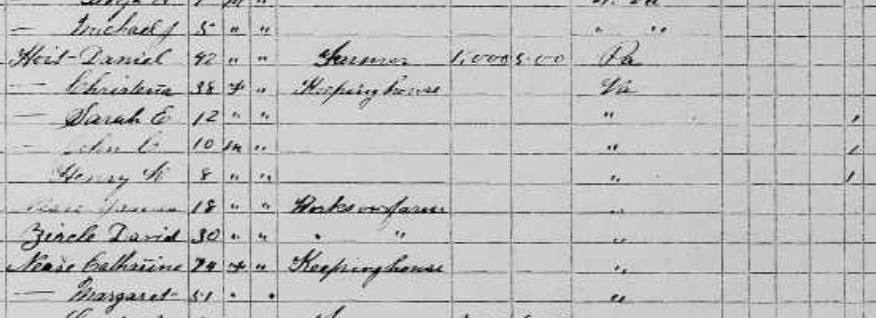 — Michael J 5 " " " "
Hoit Daniel 42 " " Farmer 1,000 500 Pa
— Christena 38 f " Keeping house Va
— Sarah E 12 " " " ,
— John C 10 m " " ,
— Henry W 8 " " " 1
18 " " Works on farm "
Zircle David 30 " " " " "
Nease Catharine 74 f " Keeping house "
— Margaret 51 " " "